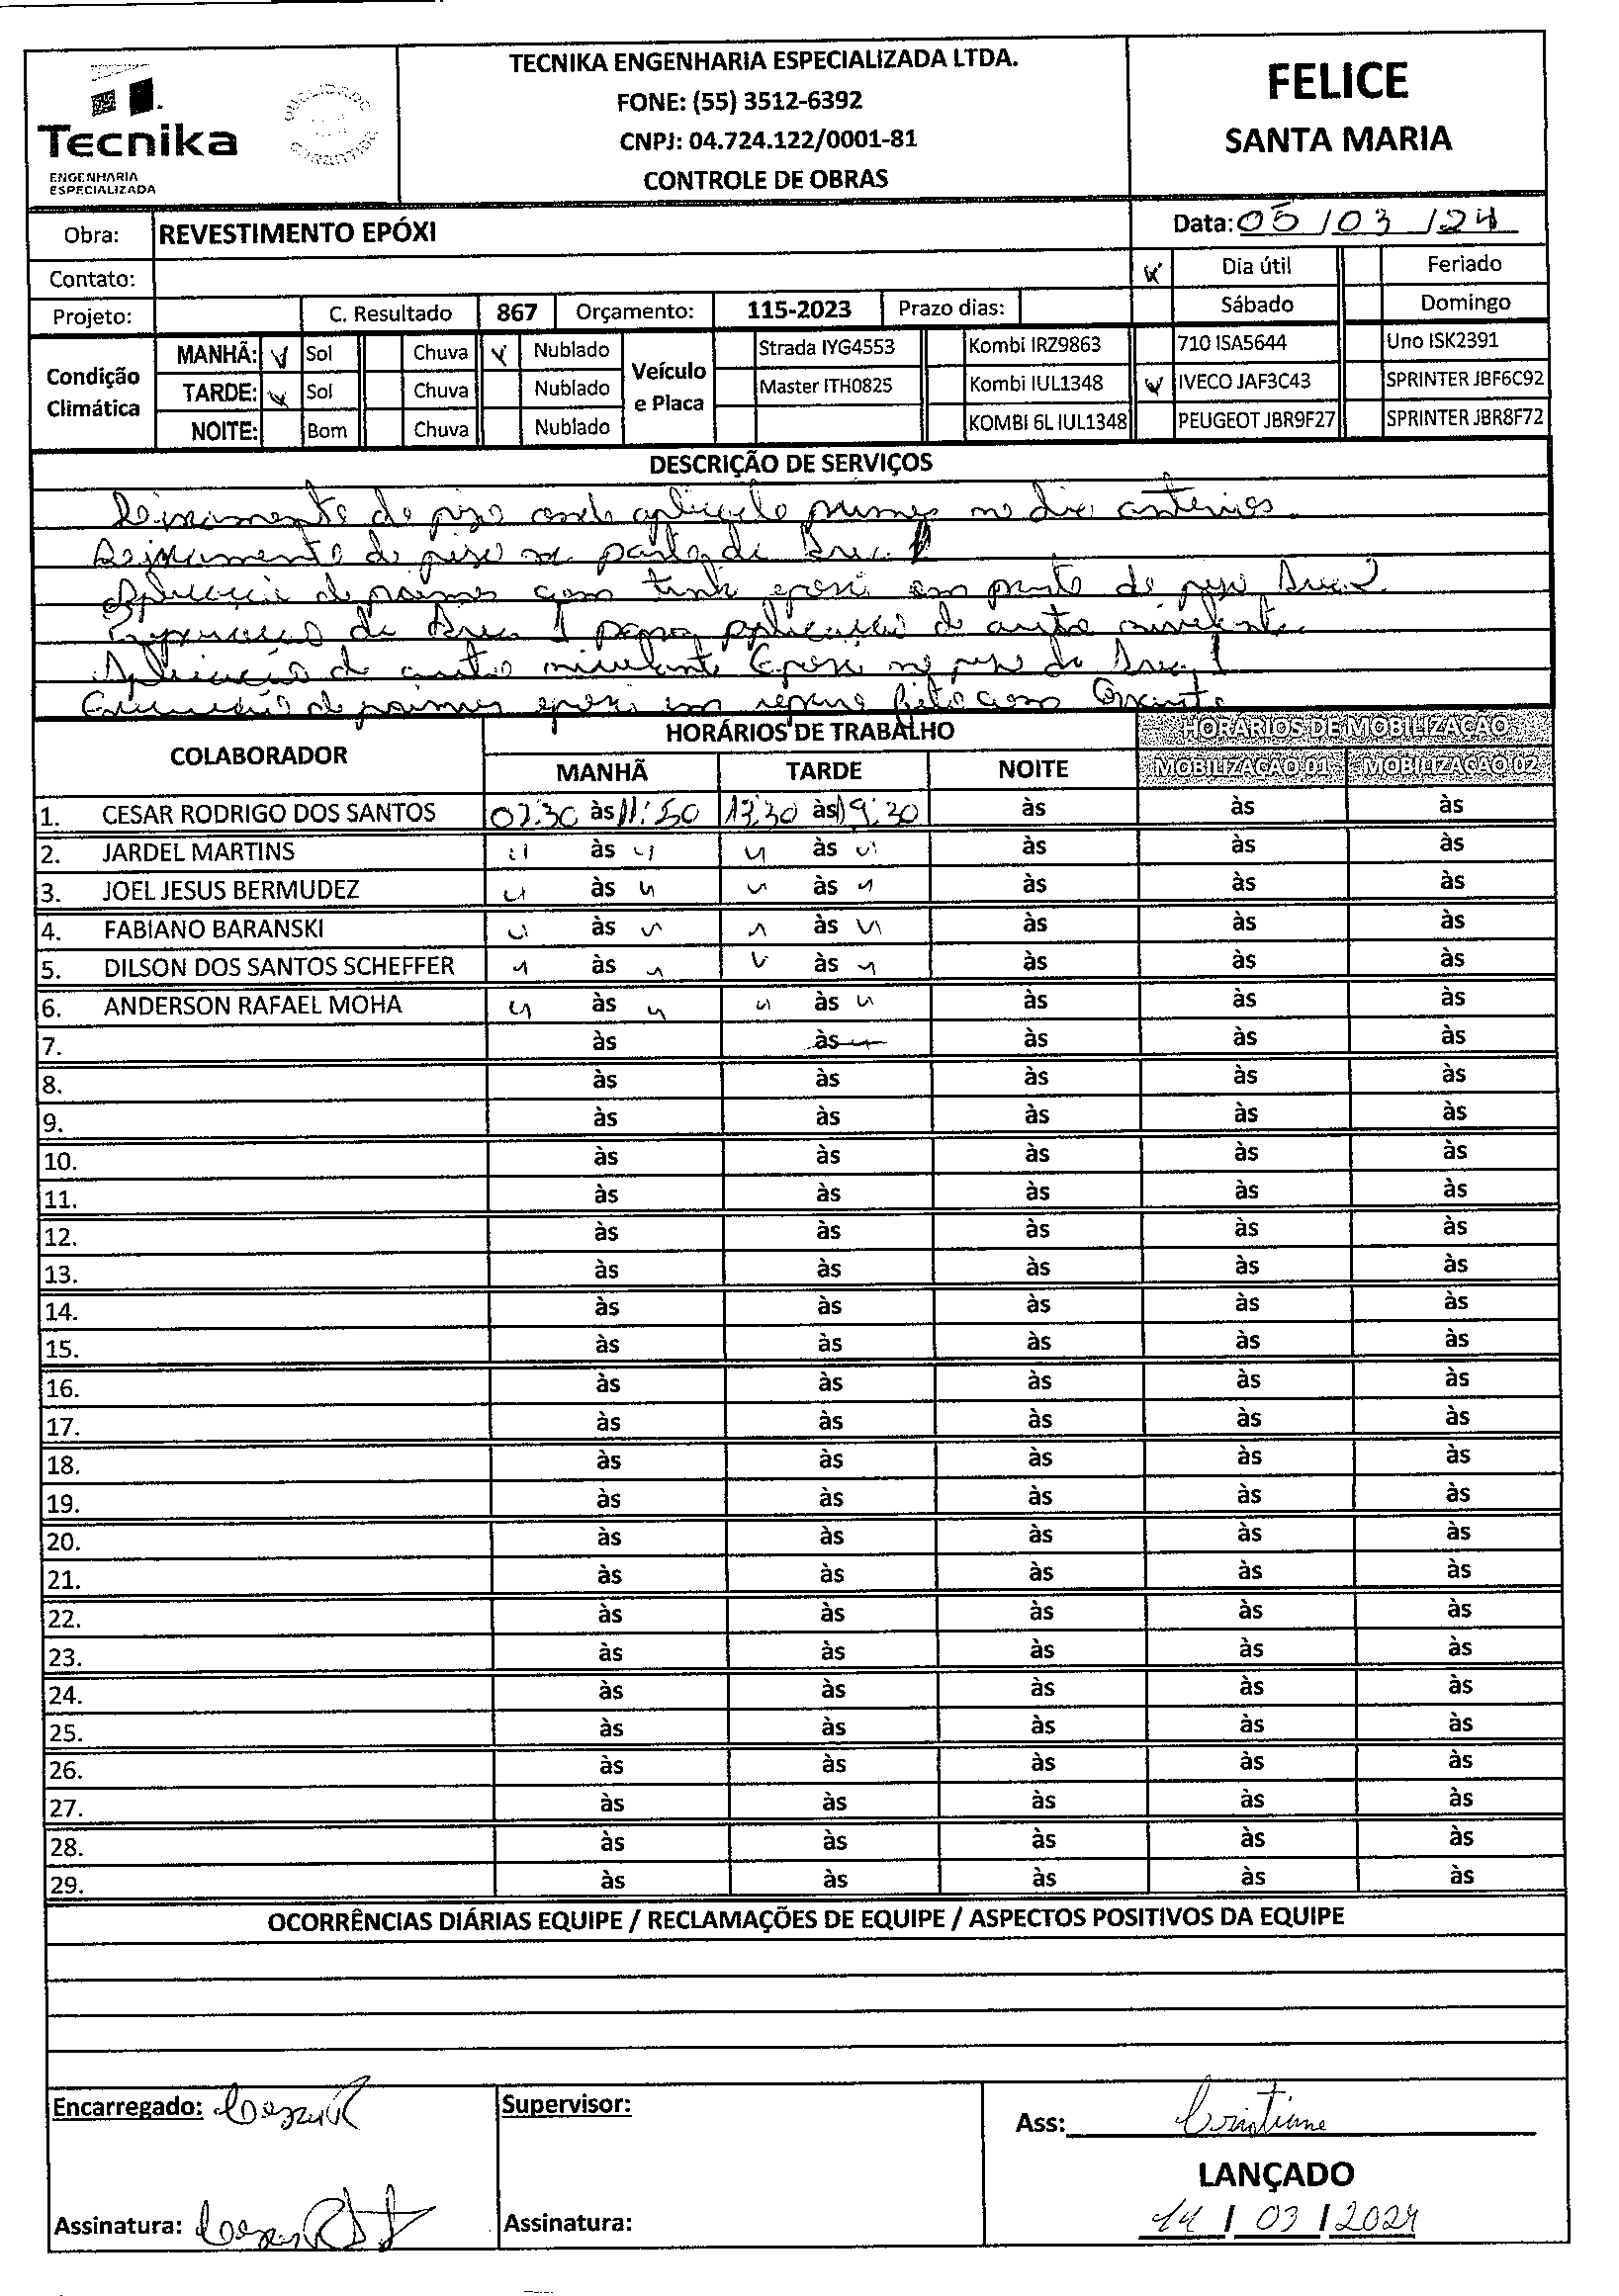 Tecnika
ENGENHARIA
ESPECIALIZADA
TECNIKA ENGENHARIA ESPECIALIZADA LTDA.
FONE: (55) 3512-6392
CNPJ: 04.724.122/0001-81
CONTROLE DE OBRAS
FELICE
SANTA MARIA
Obra: REVESTIMENTO EPÓXI
Data: 05/03/24
Contato:
Dia útil Feriado
Projeto: C. Resultado 867 Orçamento: 115-2023 Prazo dias:
Sábado Domingo
Condição Climática
MANHÃ: Sol Chuva Nublado
TARDE: Sol Chuva Nublado
NOITE: Bom Chuva Nublado
Veículo e Placa
Strada IYG4553 Kombi IRZ9863 710 ISA5644 Uno ISK2391
Master ITH0825 Kombi IUL1348 IVECO JAF3C43 SPRINTER JBF6C92
KOMBI 6L IUL1348 PEUGEOT JBR9F27 SPRINTER JBR8F72
DESCRIÇÃO DE SERVIÇOS
de piso aplicado primer no dia anterior.
de piso parte da Area 1
Aplicação de primer com tinta epoxi em parte do piso Area 2
da Area 1 para aplicação de auto nivelante.
Aplicação de auto nivelante Epoxi no piso da Area 1
de primer epoxi em reparo feito com
COLABORADOR HORÁRIOS DE TRABALHO HORÁRIOS DE MOBILIZAÇÃO
MANHÃ TARDE NOITE MOBILIZAÇÃO 01 MOBILIZAÇÃO 02
1. CESAR RODRIGO DOS SANTOS 07:30 às 11:50 13:30 às 19:30 às às às
2. JARDEL MARTINS " às " " às " às às às
3. JOEL JESUS BERMUDEZ " às " " às " às às às
4. FABIANO BARANSKI " às " " às " às às às
5. DILSON DOS SANTOS SCHEFFER " às " " às " às às às
6. ANDERSON RAFAEL MOHA " às " " às " às às às
7. às às às às às
8. às às às às às
9. às às às às às
10. às às às às às
11. às às às às às
12. às às às às às
13. às às às às às
14. às às às às às
15. às às às às às
16. às às às às às
17. às às às às às
18. às às às às às
19. às às às às às
20. às às às às às
21. às às às às às
22. às às às às às
23. às às às às às
24. às às às às às
25. às às às às às
26. às às às às às
27. às às às às às
28. às às às às às
29. às às às às às
OCORRÊNCIAS DIÁRIAS EQUIPE / RECLAMAÇÕES DE EQUIPE / ASPECTOS POSITIVOS DA EQUIPE
Encarregado: Cesar R
Supervisor:
Ass: Cristiane
LANÇADO
Assinatura:
Assinatura:
14 / 03 / 2024